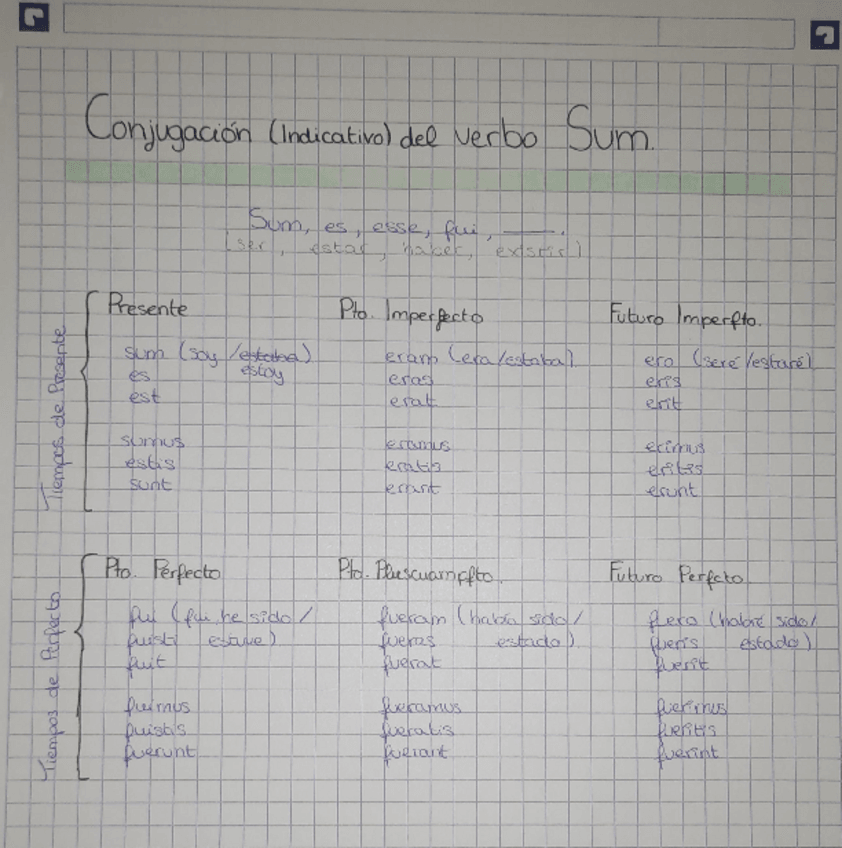 Conjugación (Indicativo) del verbo Sum.
Sum, es, esse, fui, ____.
(ser, estar, haber, existir)
Tiempos de Presente
Presente
sum (soy /estaba)
es estoy
est
sumus
estis
sunt
Pto. Imperfecto
eram (era/estaba)
eras
erat
eramus
eratis
erant
Futuro Imperfto.
ero (seré/estaré)
eris
erit
erimus
eritis
erunt
Tiempos de Perfecto
Pto. Perfecto
fui (fui, he sido /
fuisti estuve)
fuit
fuimus
fuistis
fuerunt
Pto. Pluscuampfto.
fueram (había sido/
fueras estado)
fuerat
fueramus
fueratis
fuerant
Futuro Perfcto
fuero (habré sido/
fueris estado)
fuerit
fuerimus
fueritis
fuerint